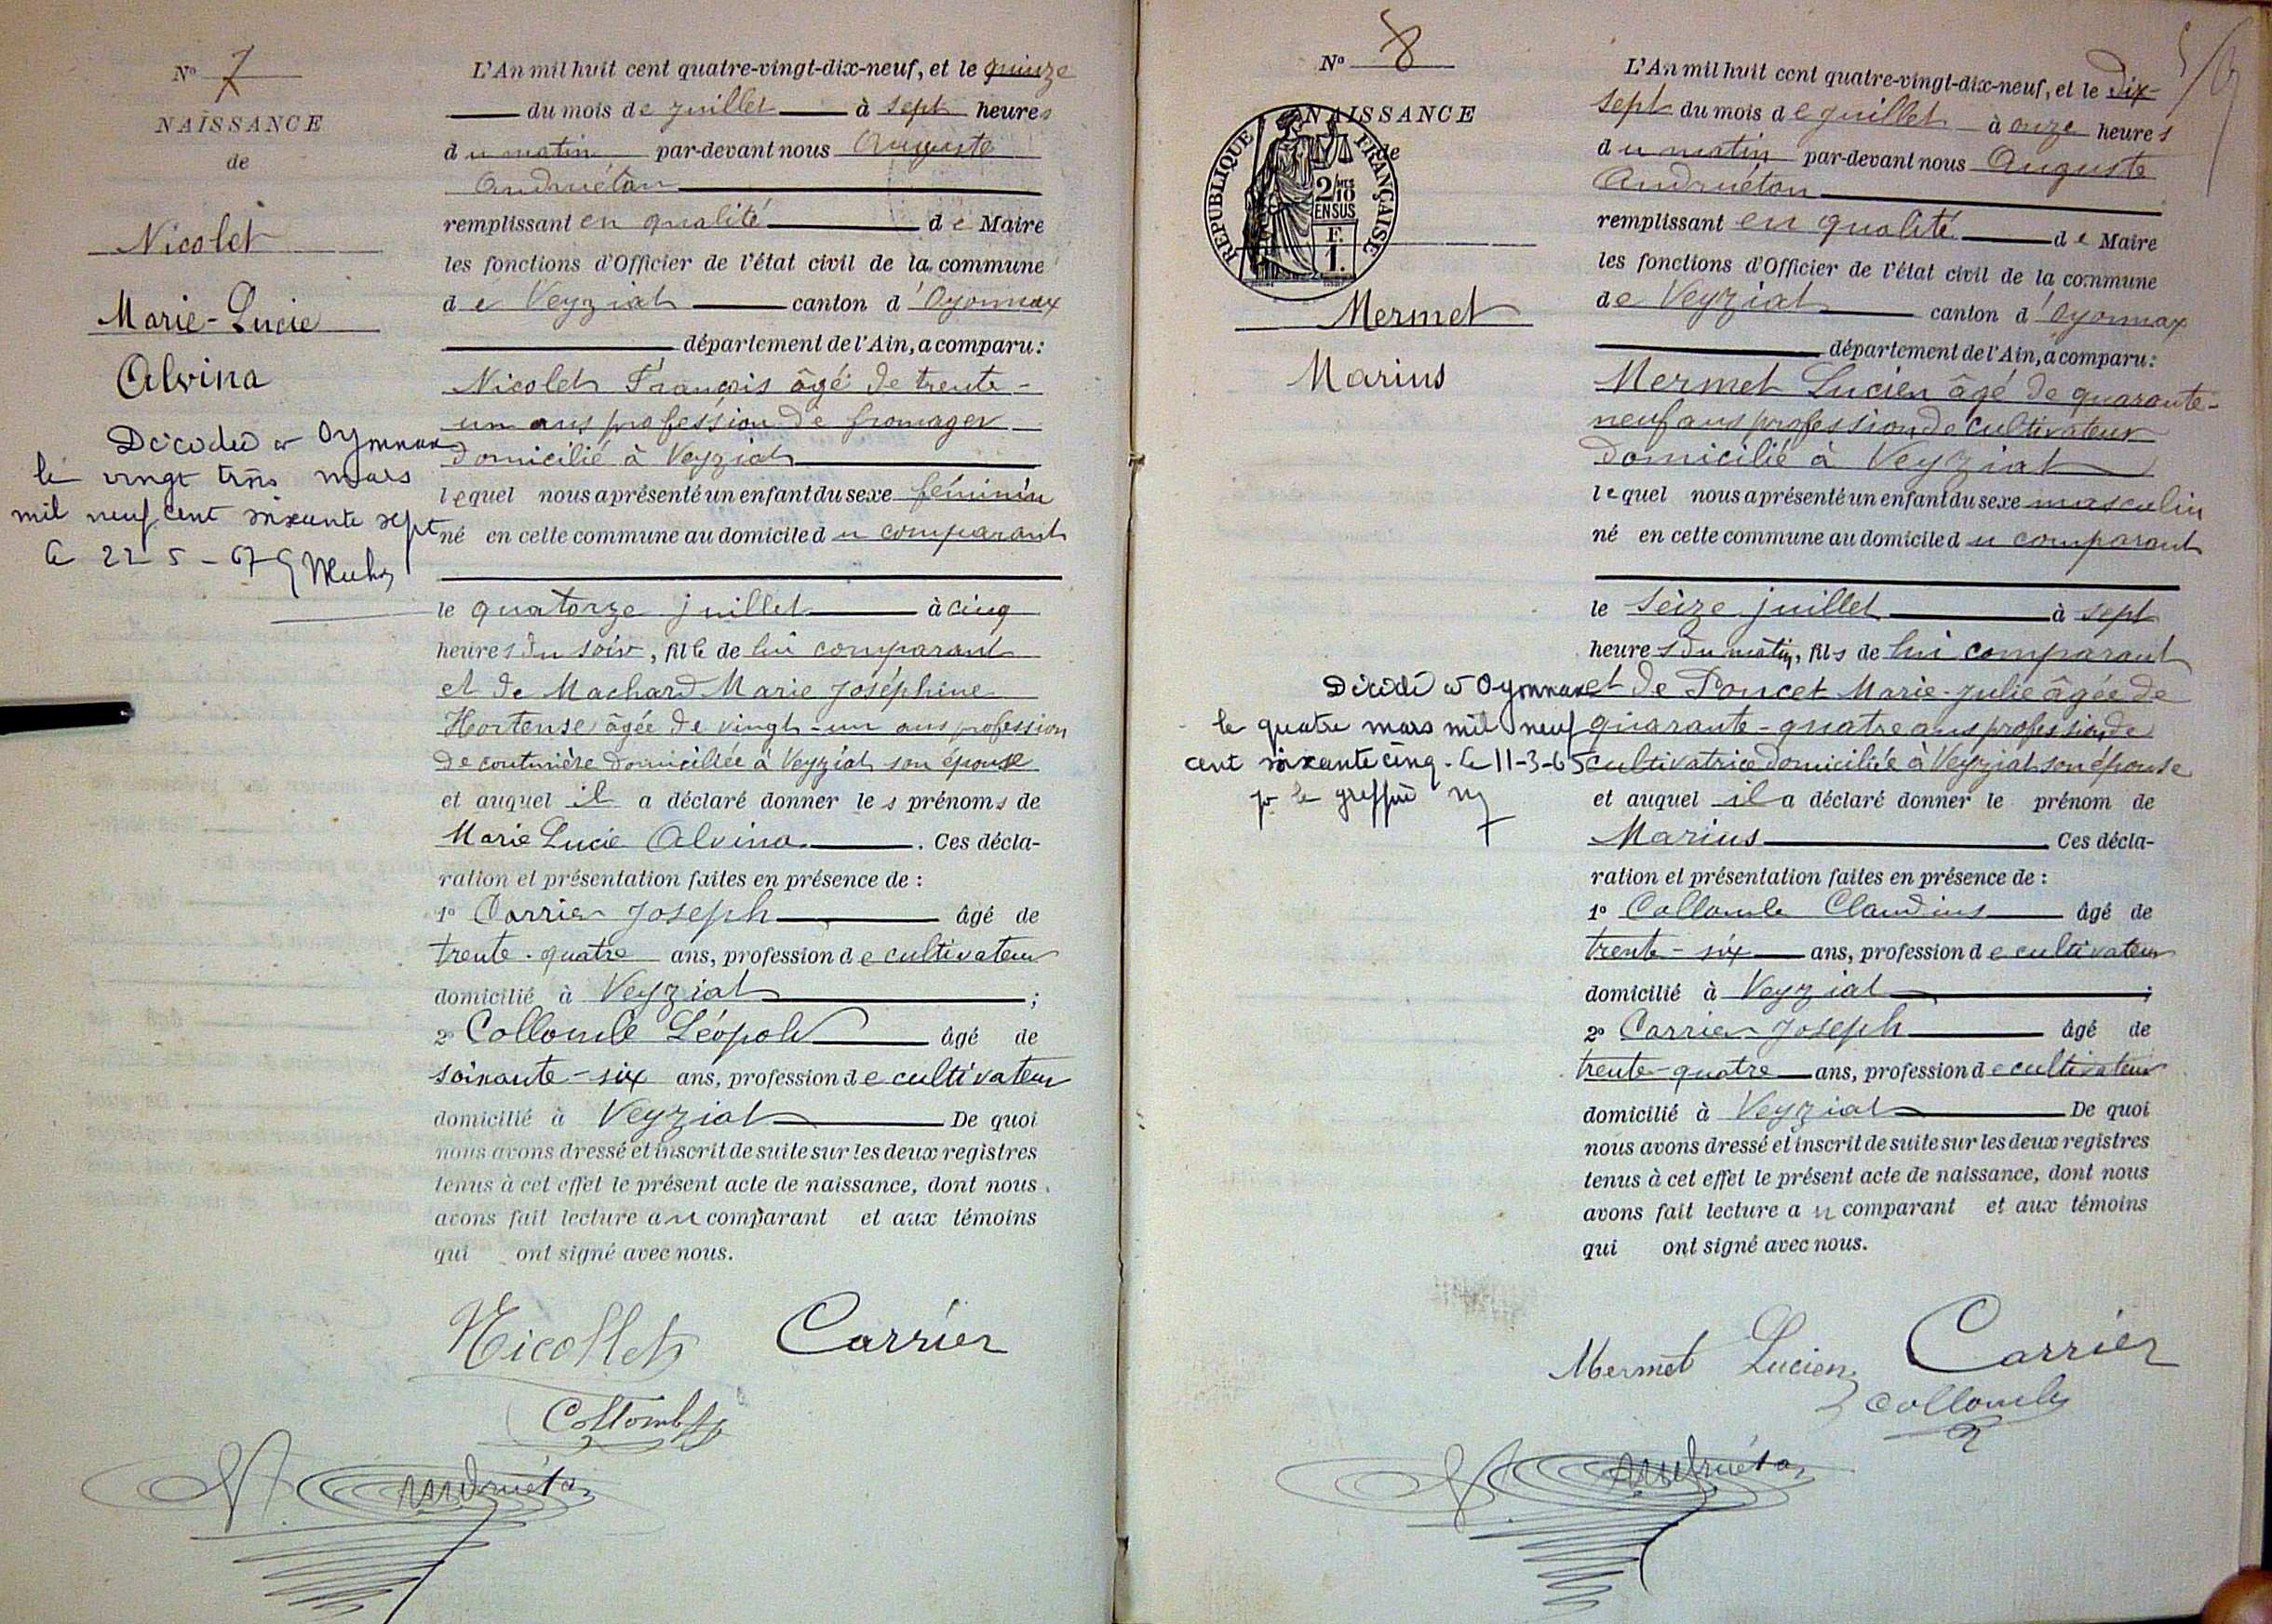 Nº 7
NAISSANCE
de
Nicolet
Marie-Lucie
Alvina
Décédée à Oyonnax
le vingt trois mars
mil neuf cent soixante sept
le 22-5-67
L'An mil huit cent quatre-vingt-dix-neuf, et le quinze
du mois de juillet à sept heures
du matin par-devant nous Auguste
Andruétan
remplissant en qualité de Maire
les fonctions d'Officier de l'état civil de la commune
de Veyziat canton d'Oyonnax
département de l'Ain, a comparu :
Nicolet François âgé de trente-
un ans profession de fromager
domicilié à Veyziat
lequel nous a présenté un enfant du sexe féminin
né en cette commune au domicile du comparant
le quatorze juillet à cinq
heures du soir, fille de lui comparant
et de Machard Marie Joséphine
Hortense âgée de vingt-un ans profession
de couturière domiciliée à Veyziat son épouse
et auquel il a déclaré donner les prénoms de
Marie Lucie Alvina. Ces décla-
ration et présentation faites en présence de :
1º Carrier Joseph âgé de
trente-quatre ans, profession de cultivateur
domicilié à Veyziat ;
2º Collomb Léopold âgé de
soixante-six ans, profession de cultivateur
domicilié à Veyziat De quoi
nous avons dressé et inscrit de suite sur les deux registres
tenus à cet effet le présent acte de naissance, dont nous
avons fait lecture au comparant et aux témoins
qui ont signé avec nous.
Nicollet Carrier
Collomb
Andruétan
Nº 8
NAISSANCE
de
RÉPUBLIQUE FRANÇAISE
2/10 EN SUS
F. 1.
Mermet
Marius
Décédé à Oyonnax
le quatre mars mil neuf
cent soixante cinq. le 11-3-65
pr le greffier
L'An mil huit cent quatre-vingt-dix-neuf, et le dix-
sept du mois de juillet à onze heures
du matin par-devant nous Auguste
Andruétan
remplissant en qualité de Maire
les fonctions d'Officier de l'état civil de la commune
de Veyziat canton d'Oyonnax
département de l'Ain, a comparu :
Mermet Lucien âgé de quarante-
neuf ans profession de cultivateur
domicilié à Veyziat
lequel nous a présenté un enfant du sexe masculin
né en cette commune au domicile du comparant
le seize juillet à sept
heures du matin, fils de lui comparant
et de Poncet Marie-Julie âgée de
quarante-quatre ans profession de
cultivatrice domiciliée à Veyziat son épouse
et auquel il a déclaré donner le prénom de
Marius Ces décla-
ration et présentation faites en présence de :
1º Collomb Claudius âgé de
trente-six ans, profession de cultivateur
domicilié à Veyziat ;
2º Carrier Joseph âgé de
trente-quatre ans, profession de cultivateur
domicilié à Veyziat De quoi
nous avons dressé et inscrit de suite sur les deux registres
tenus à cet effet le présent acte de naissance, dont nous
avons fait lecture au comparant et aux témoins
qui ont signé avec nous.
Mermet Lucien Carrier
Collomb
Andruétan